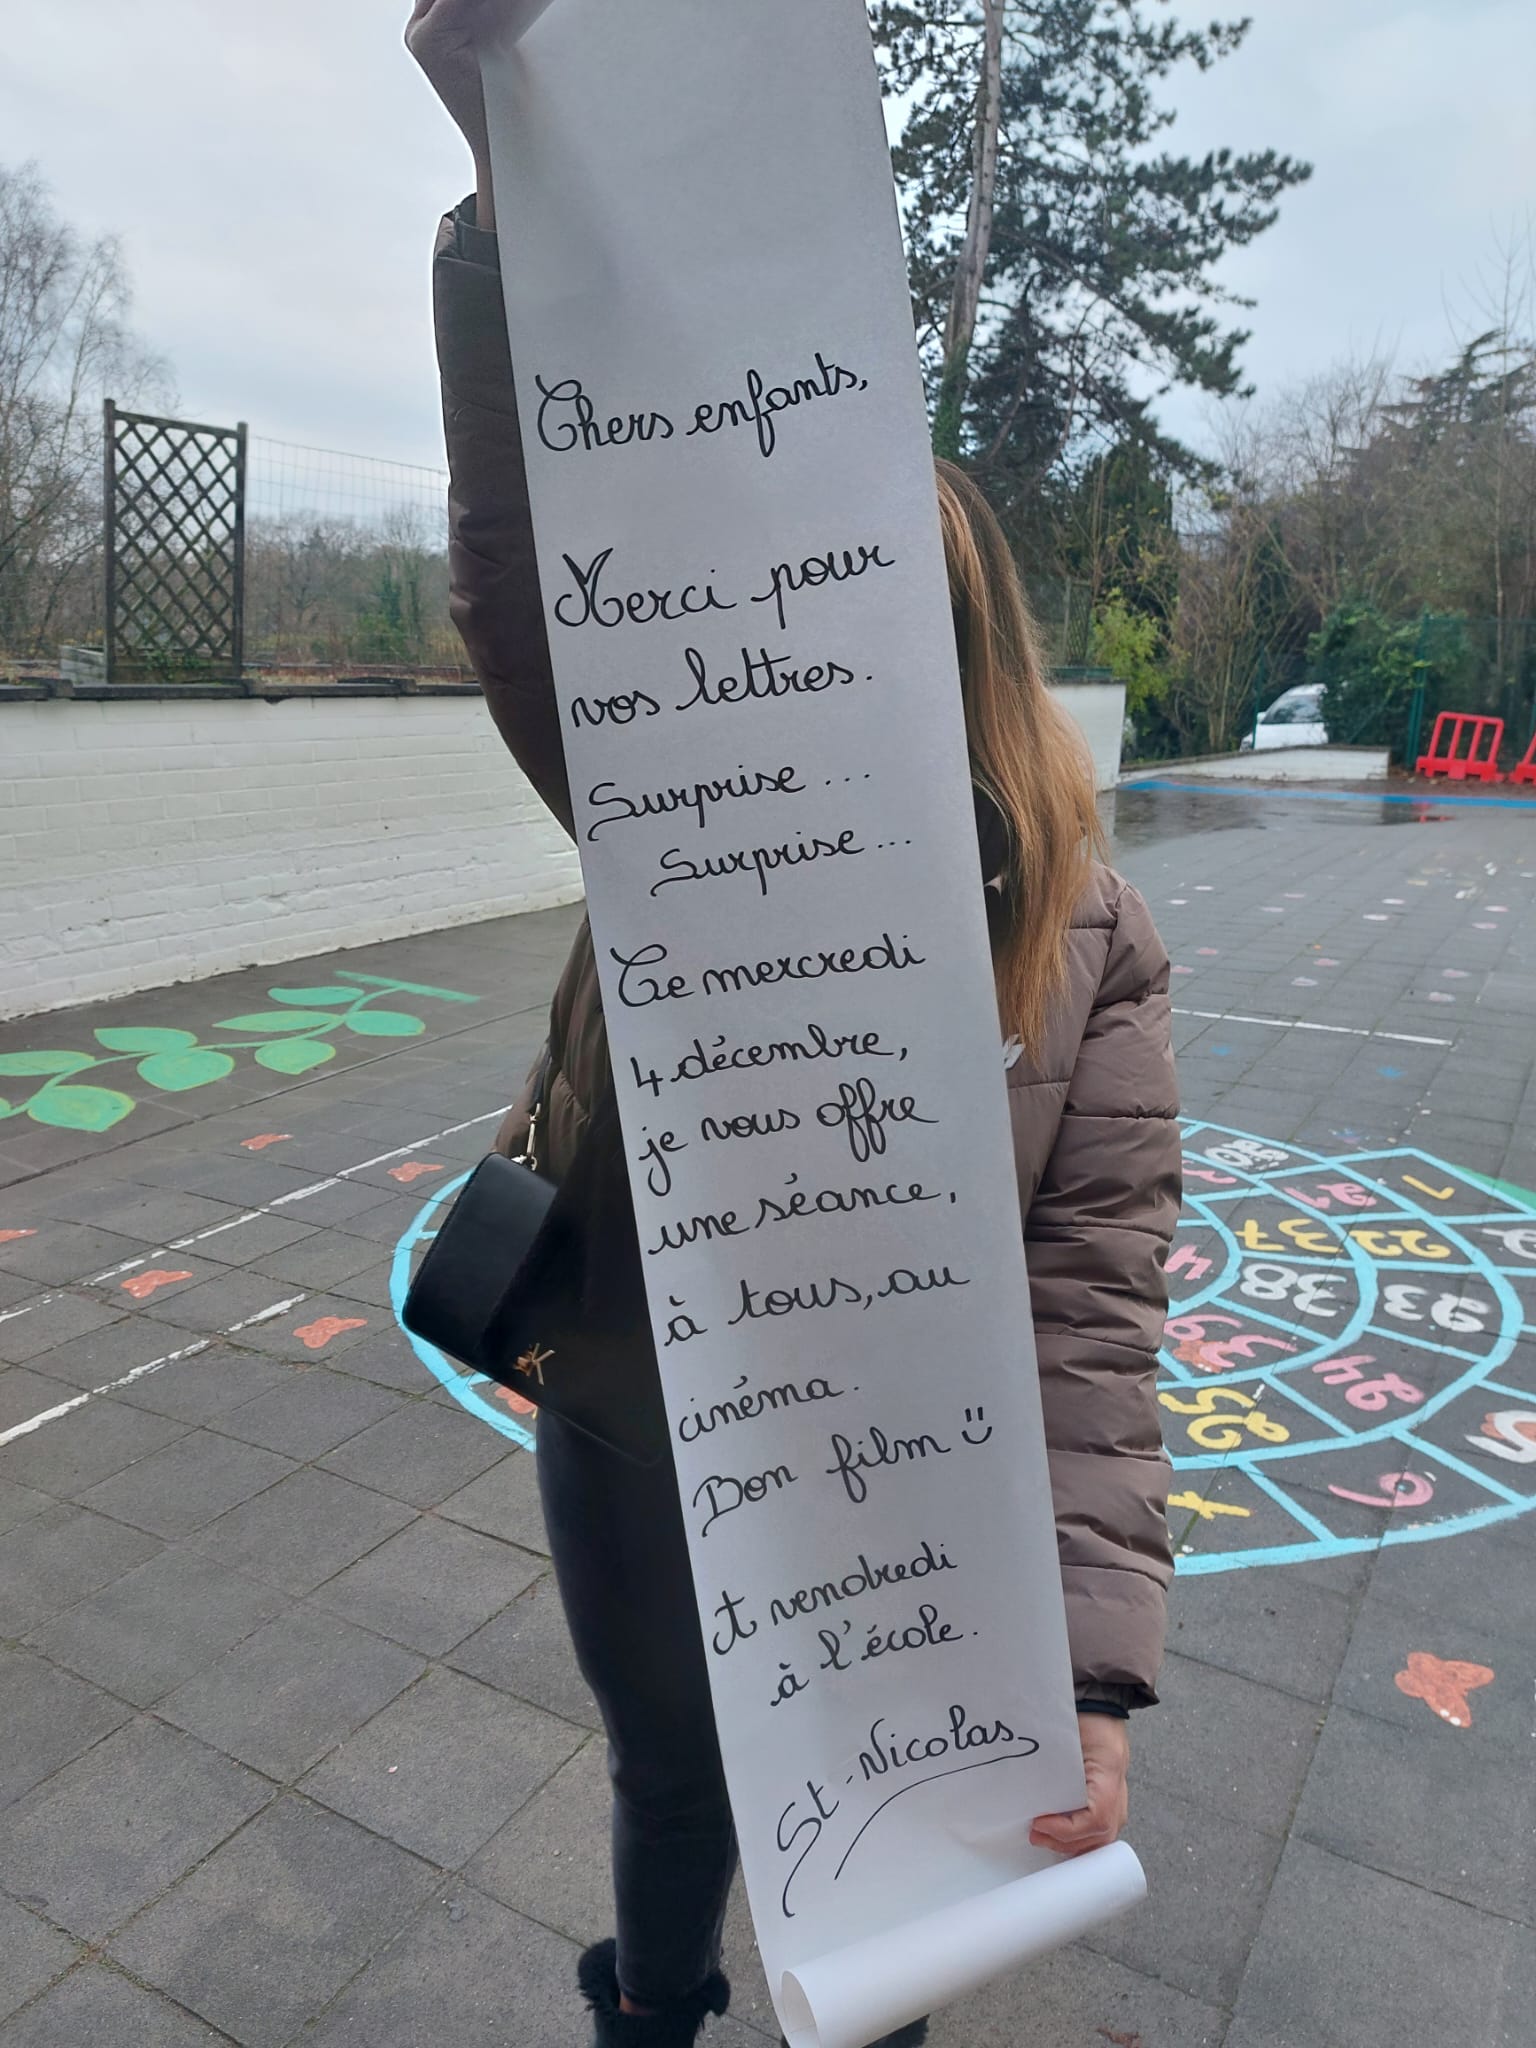 Chers enfants,
Merci pour
vos lettres.
Surprise...
Surprise...
Ce mercredi
4 décembre,
je vous offre
une séance,
à tous, au
cinéma.
Bon film
A vendredi
à l'école.
St-Nicolas
10
21
1
37
22
4
38
23
39
24
25
5
6